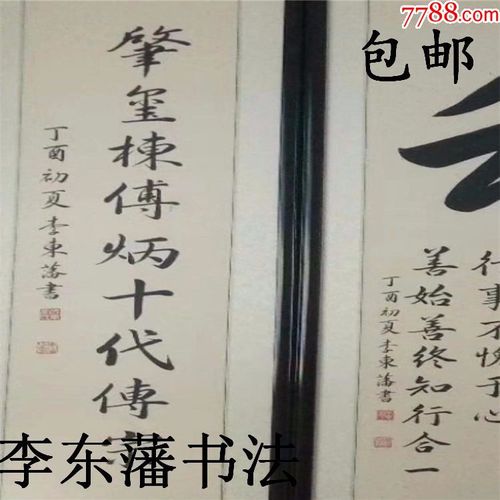 7788.com
包邮
肇玺棟傅炳十代傳
丁酉初夏李東藩書
行事不愧于心
善始善终知行合一
丁酉初夏李東藩書
李东藩书法